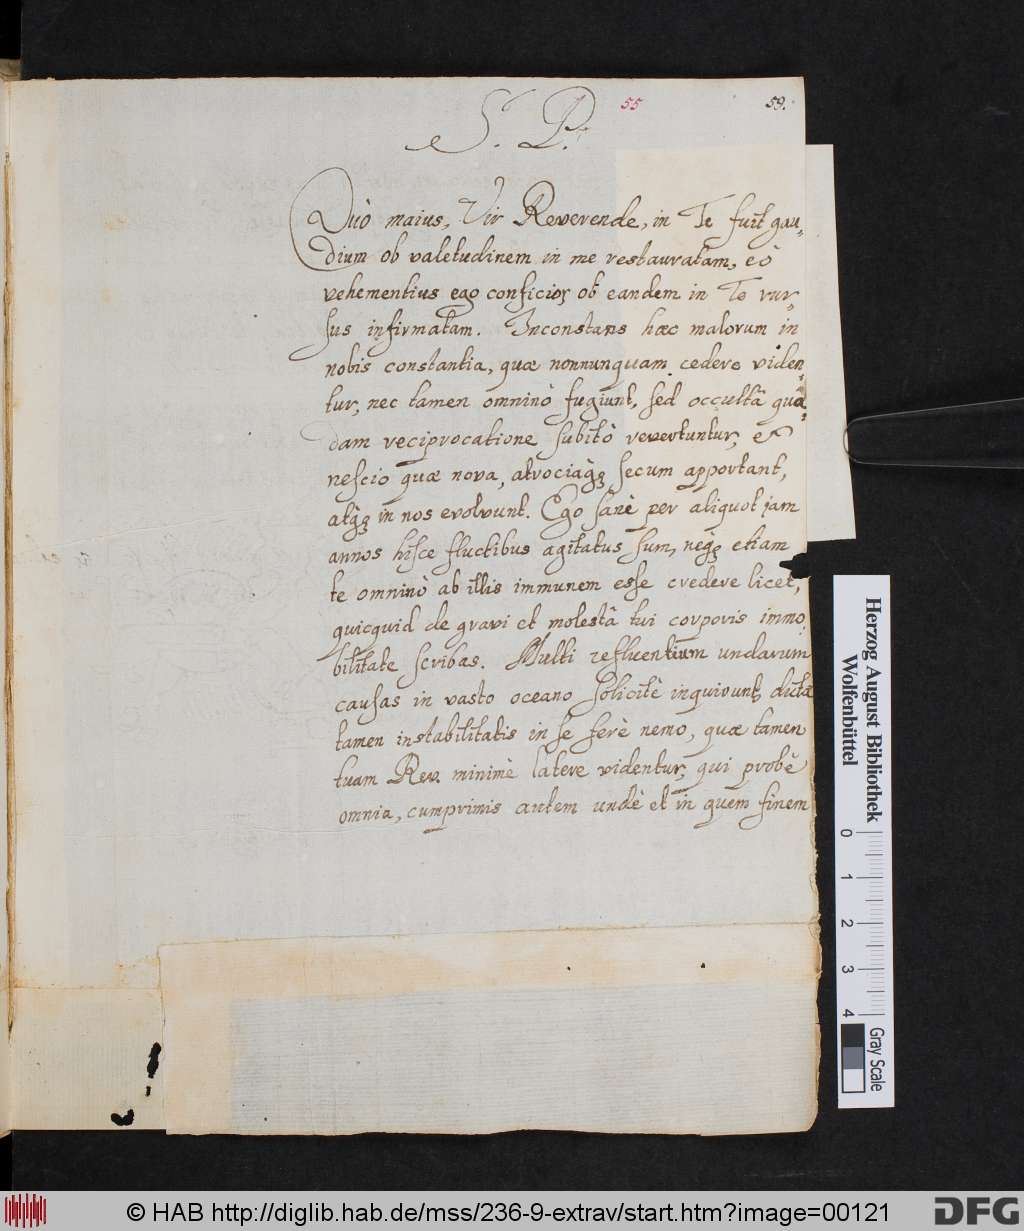 55
59.
S. P.
Quò maius, Vir Reverende, in Te fuit gau„
dium ob valetudinem in me restauratam, eò
vehementius ego conficior ob eandem in Te rur„
sus infirmatam. Inconstans haec malorum in
nobis constantia, quae nonnunquam cedere viden„
tur, nec tamen omninò fugiunt, sed occultâ quâ„
dam reciprocatione subitò revertuntur, et
nescio quae nova, atrociaq́ꝫ secum apportant,
atq́ꝫ in nos evolvunt. Ego sanè per aliquot jam
annos hisce fluctibus agitatus sum, neq́ꝫ etiam
te omninò ab illis immunem esse credere licet,
quicquid de gravi et molestâ tui corporis immo„
bilitate scribas. Multi refluentium undarum
causas in vasto oceano solicitè inquirunt, dictae
tamen instabilitatis in se ferè nemo, quae tamen
tuam Rev. minimè latere videntur, qui probè
omnia, cumprimis autem undè et in quem finem
Herzog August Bibliothek
Wolfenbüttel
0 1 2 3 4
Gray Scale
© HAB http://diglib.hab.de/mss/236-9-extrav/start.htm?image=00121
DFG